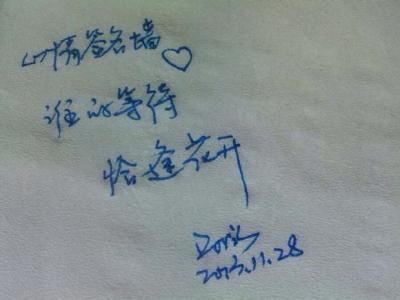 心情签名墙♡
谁的等待
恰逢花开
2013.11.28